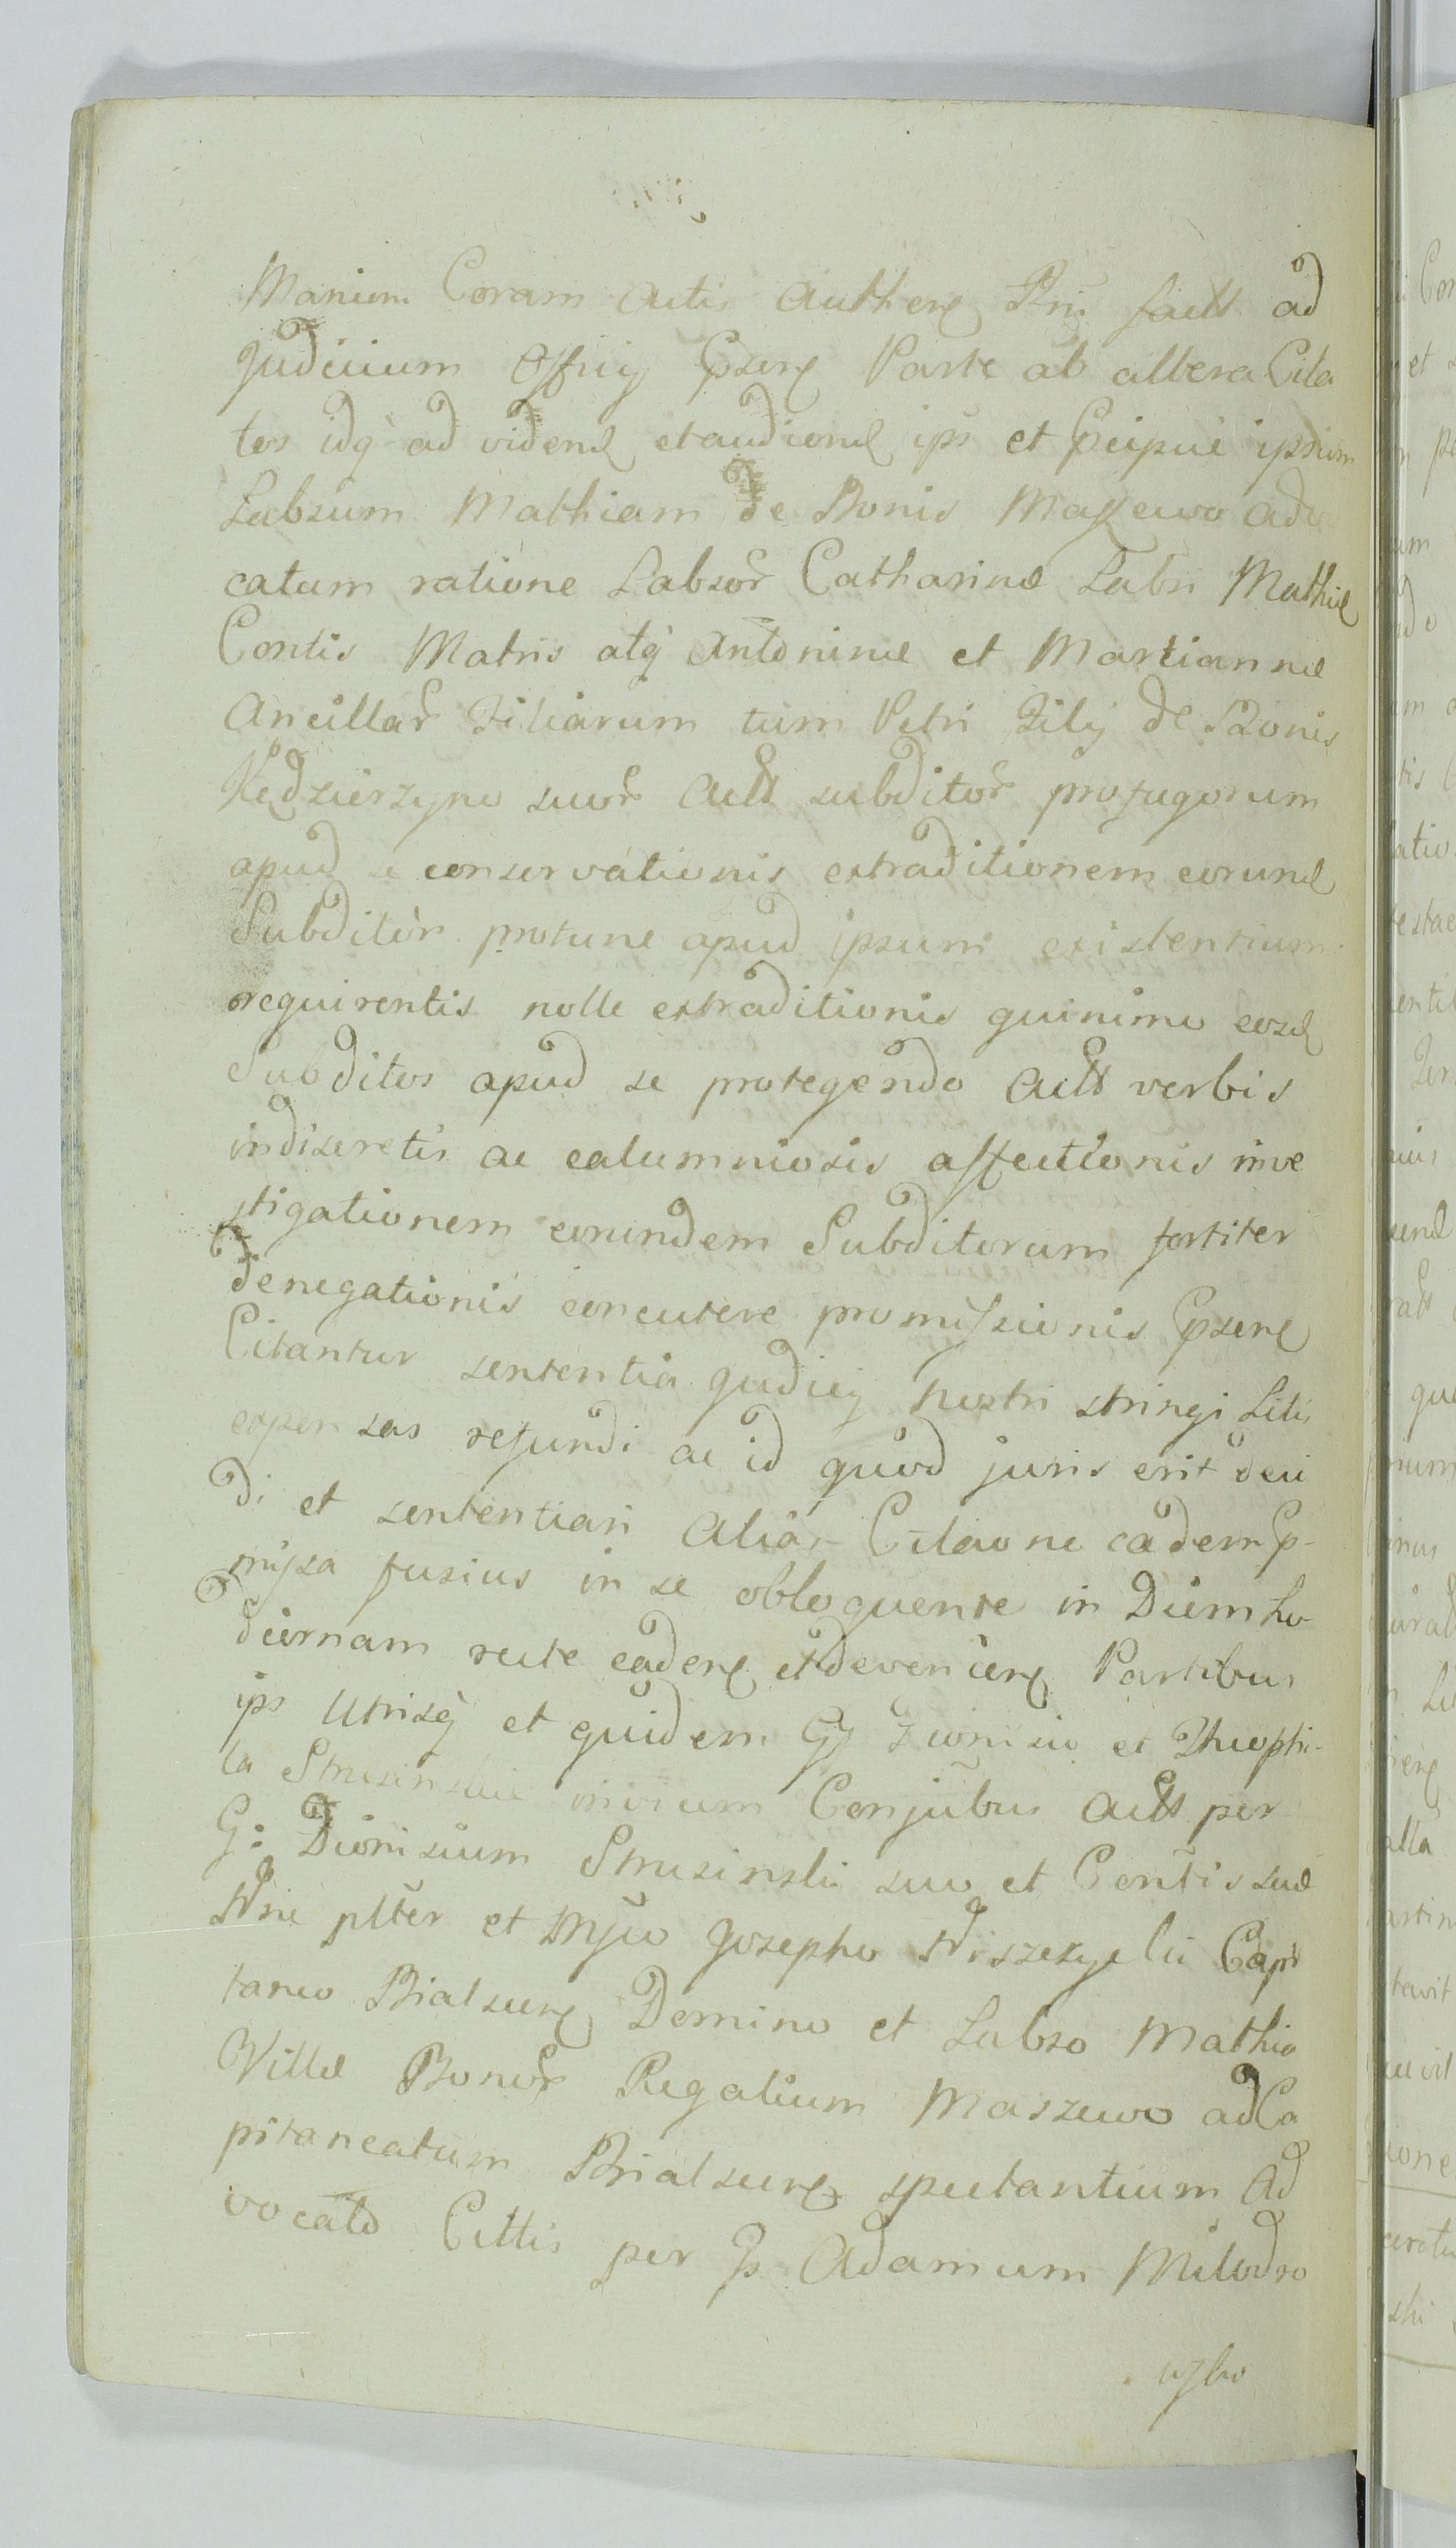 Manium Coram Actis Authen Pñi fact ad
Judicium Officij Pñs Parte ab altera Cita
tos idq ad videnđ et audienđ ips et Pcipue ipsum
Labsum Mathiam de Bonis Maszewo adv
catum ratione Labsor Catharinæ Labri Mathiæ
Contis Matris atq Antoninæ et Mariannæ
Ancillar Filiarum tum Petri Filij de Bonis
Kędzierzyno suor Actt subditor profugorum
apud se conservationis extraditionem eorund
Subditor protunc apud ipsum existentium
requirentis nolle extraditionis quinimo eosd
Subditos apud se protegendo Actt verbis
indiscretis ac calumniosis affectionis inve
stigationem eorundem Subditorum fortiter
denegationis concutere promissionis
Citantur sententia Judicij nostri stringi Litis
expensas refundi ac id quod juris erit deci
di et sententiari Alias Citaone eadem p-
missa fusius in se obloquente in Diem ho-
diernam recte caden et devenien Partibus
ips Utrisq et quidem GG Dionisio et Theophi-
la Strusinskie invicem Conjubus Actt per
G: Dionisium Strusinski suo et Contis suæ
Nñe plter et Mgco Josepho Niszczycki Capi
taneo Bialscen Domino et Labso Mathia
Villæ Bonor Regalium Maszewo ad Ca
pitaneatum Bialscen spectantium Ad
vocato Cittis per G Adamum Milodro
wsko